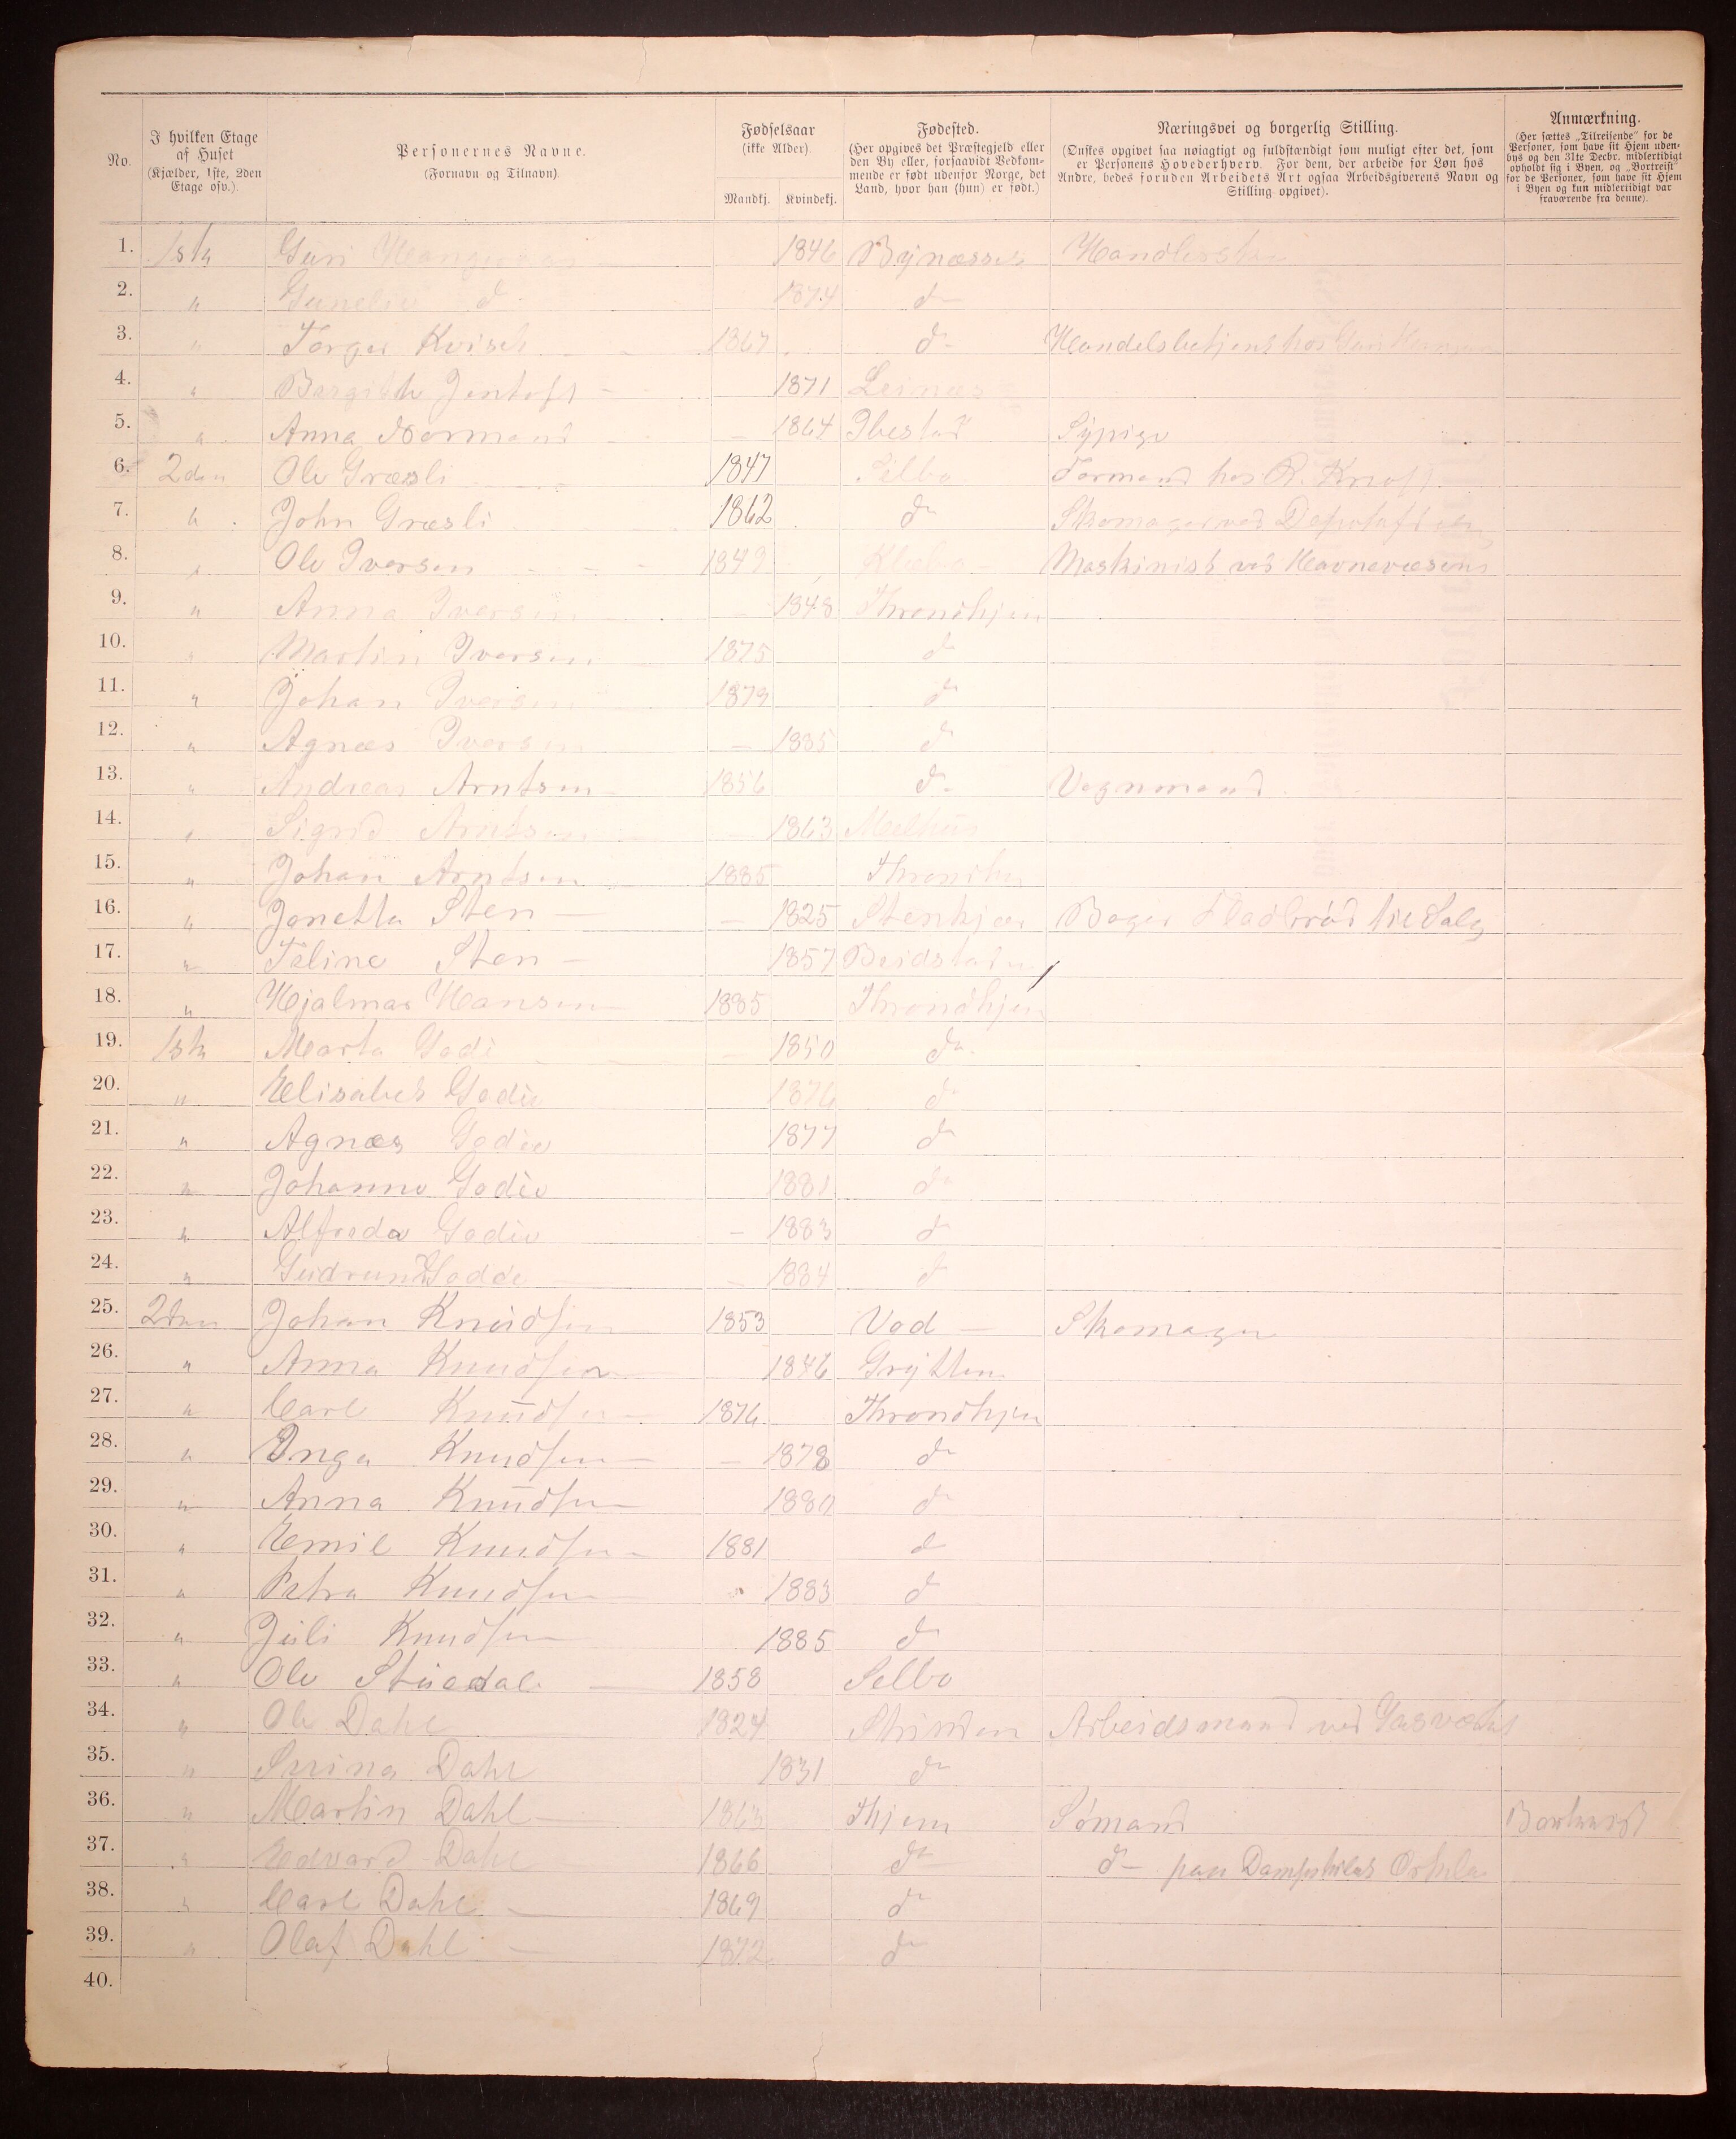 No.
I hvilken Etage af Huset (Kjælder, 1ste, 2den Etage osv.).
Personernes Navne. (Fornavn og Tilnavn).
Fødselsaar (ikke Alder).
Mandkj. Kvindekj.
Fødested. (Her opgives det Præstegjeld eller den By eller, forsaavidt Vedkommende er født udenfor Norge, det Land, hvor han (hun) er født.)
Næringsvei og borgerlig Stilling. (Ønskes opgivet saa nøiagtigt og fuldstændigt som muligt efter det, som er Personens Hovederhverv. For dem, der arbeide for Løn hos Andre, bedes foruden Arbeidets Art ogsaa Arbeidsgiverens Navn og Stilling opgivet).
Anmærkning. (Her sættes „Tilreisende" for de Personer, som have sit Hjem udenbys og den 31te Decbr. midlertidigt opholdt sig i Byen, og „Bortreist" for de Personer, som have sit Hjem i Byen og kun midlertidigt var fraværende fra denne).
1. 1ste Guri 1846 Bynæsset
2. " d 1874 do
3. " Torger Kvisel 1867 do Handelsbetjent hos Guri
4. " Bergitte Jentoft 1871 Leinæs
5. " Anna Normand 1864 Ibestad Sypige
6. 2den Ole Græsli 1847 Selbo Formand hos R. Knoff
7. " John Græsli 1862 do Skomager ved
8. " Ole Iversen 1849 Klæbo Maskinist ved Havnevæsenet
9. " Anna Iversen 1848 Throndhjem
10. " Martin Iversen 1875 do
11. " Johan Iversen 1879 do
12. " Agnæs Iversen 1885 do
13. " Andreas Arntsen 1856 do Vognmand
14. " Sigrid Arntsen 1863 Melhus
15. " Johan Arntsen 1885 Throndhjem
16. " Janetta Sten 1825 Stenkjær Bager Fladbrød til Salg
17. " Teline Sten 1857 Beidstaden
18. " Hjalmar Hansen 1885 Throndhjem
19. 1ste Marta Gade 1850 do
20. " Elisabet Gadie 1876 do
21. " Agnæs Gadie 1877 do
22. " Johanne Gadie 1881 do
23. " Alfreda Gadie 1883 do
24. " Gudrun 1884 do
25. 2den Johan Knudsen 1853 Vod Skomager
26. " Anna Knudsen 1846 Grytten
27. " Carl Knudsen 1876 Throndhjem
28. " Inga Knudsen 1878 do
29. " Anna Knudsen 1880 do
30. " Emil Knudsen 1881 do
31. " Petra Knudsen 1883 do
32. " Juli Knudsen 1885 do
33. " Ole Stuedal 1858 Selbo
34. " Ole Dahl 1824 Strinden Arbeidsmand ved Gasværket
35. " Serina Dahl 1831 do
36. " Martin Dahl 1863 Thjem Sømand Bortreist
37. " Edvard Dahl 1866 do do paa Dampskibet Orkla
38. " Carl Dahl 1869 do
39. " Olaf Dahl 1872 do
40.